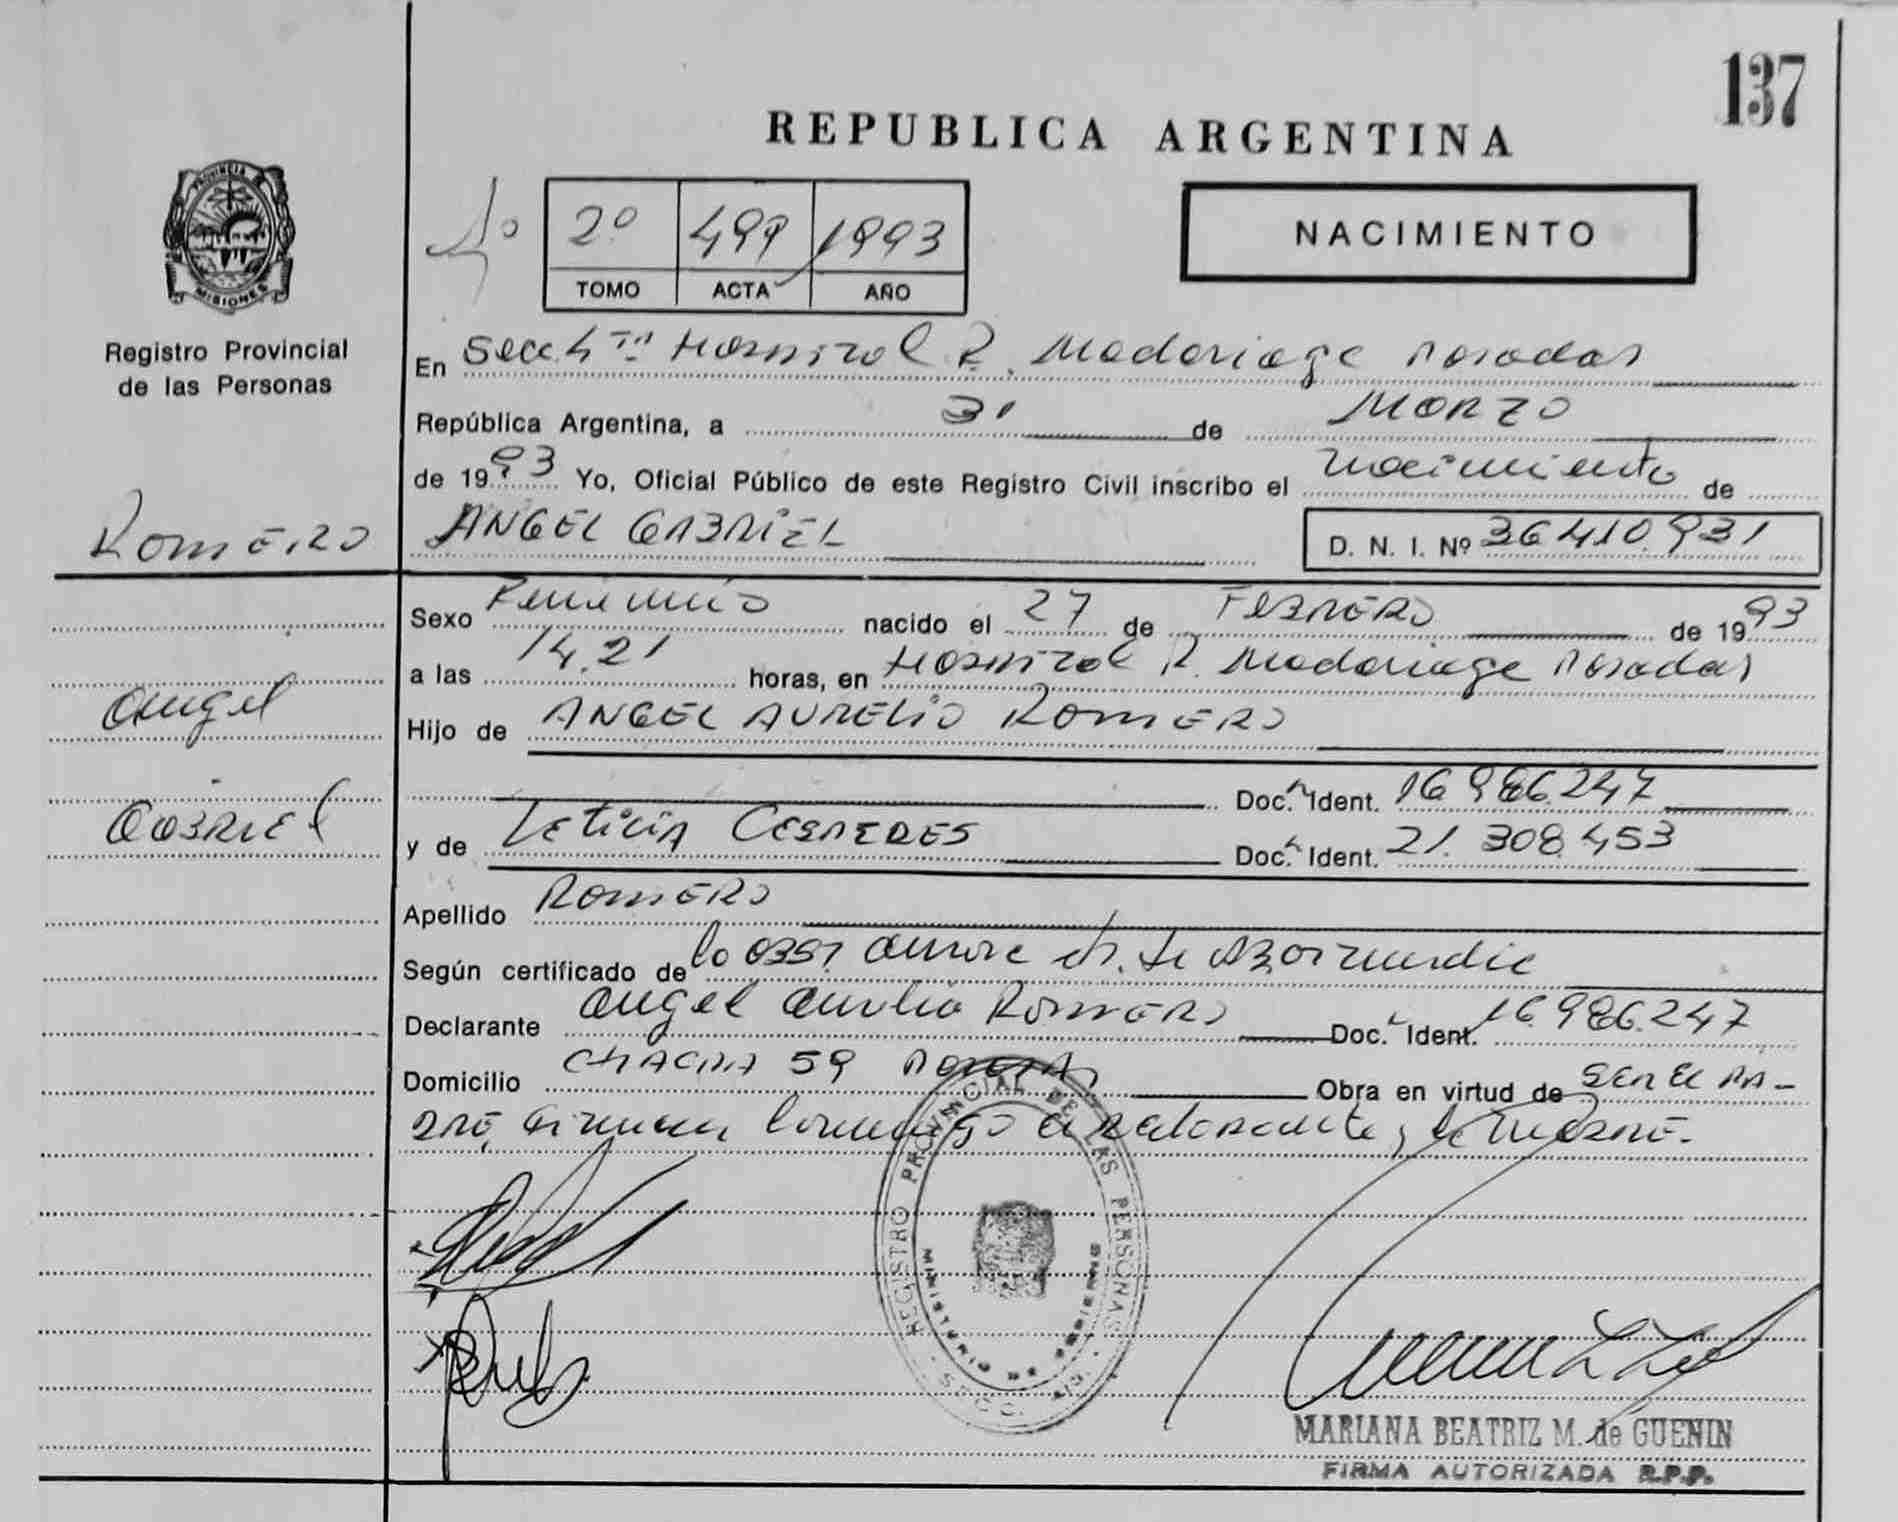 137
REPUBLICA ARGENTINA
PROVINCIA DE
MISIONES
Registro Provincial
de las Personas
4º
2º 499 1993
TOMO ACTA AÑO
NACIMIENTO
En Secc. 4ta Hospital R. Madariaga Posadas
República Argentina, a 31 de Marzo
de 1993 Yo, Oficial Público de este Registro Civil inscribo el nacimiento de
ROMERO
ANGEL GABRIEL
D. N. I. Nº 36.410.931
Sexo nacido el 27 de FEBRERO de 1993
a las 14.21 horas, en Hospital R. Madariaga Posadas
Angel
Hijo de ANGEL AURELIO ROMERO
Doc. Ident. 16.986.247
Gabriel
y de LETICIA CESPEDES Doc. Ident. 21.308.453
Apellido ROMERO
Según certificado de la obst.
Declarante Angel Aurelio ROMERO Doc. Ident. 16.986.247
Domicilio CHACRA 59 Posadas Obra en virtud de SER EL PA-
DRE, firman conmigo el declarante y la madre.
REGISTRO PROVINCIAL DE LAS PERSONAS
MINISTERIO DE GOBIERNO
MARIANA BEATRIZ M. de GUENIN
FIRMA AUTORIZADA R.P.P.